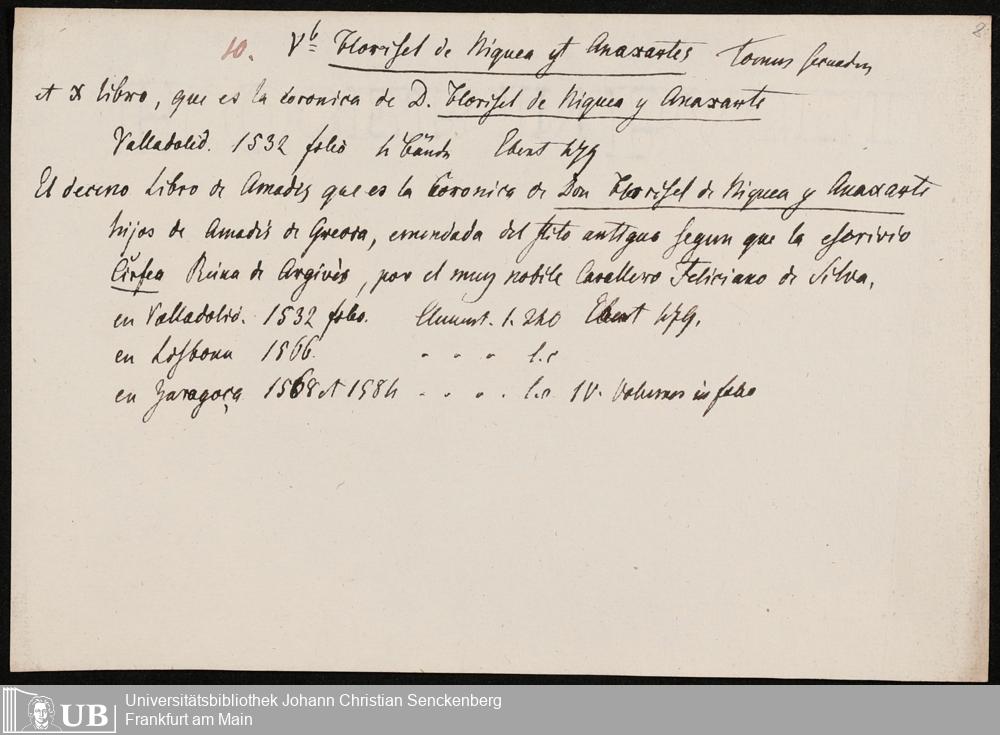 2
10. V b Florisel de Niquea yt Anaxartes Tomus secundus
et X libro, que es la coronica de D. Florisel de Niquea y Anaxarte
Valladolid. 1532 folio 4 Bände Ebert 479
El deceno Libro de Amadis que es la Coronica de Don Florisel de Niquea y Anaxarte
hijos de Amadis de Grecia, emendada del stilo antiguo segun que la escrivio
Cirfea Reina de Argives, por el muy nobile Cavallero Feliciano de Silva,
en Valladolid. 1532 folio. 1. 240 Ebert 479.
en Lisbona 1566. " " " l.c
en Zaragoça 1568 et 1584 " " " " l.c. IV. Volumes in folio
UB Universitätsbibliothek Johann Christian Senckenberg
Frankfurt am Main